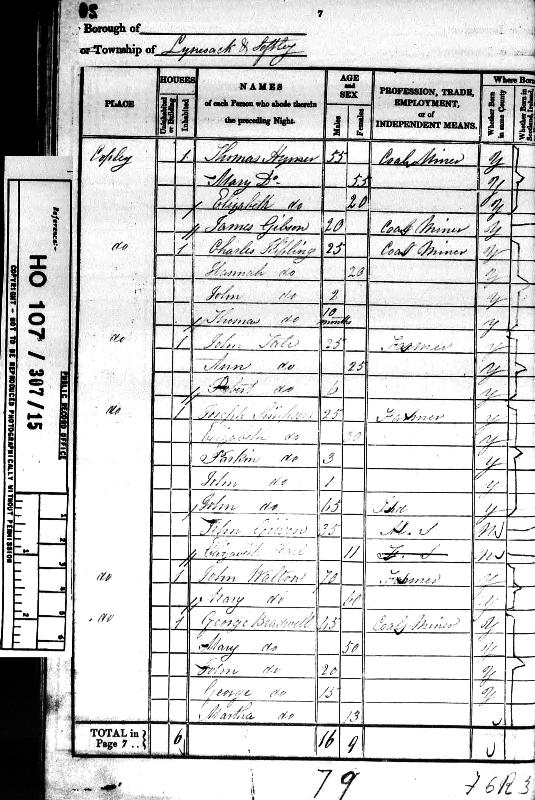 20
7
Borough of
or Township of Lynesack & Softley
PLACE
HOUSES
Uninhabited or Building
Inhabited
NAMES
of each Person who abode therein
the preceding Night.
AGE
and
SEX
Males
Females
PROFESSION, TRADE,
EMPLOYMENT,
or of
INDEPENDENT MEANS.
Where Born
Whether Born in same County
Whether Born in Scotland, Ireland,
Copley 1 Thomas 55 Coal Miner y
Mary Do 55 y
Elizabeth do 20 y
James Gibson 20 Coal Miner y
do 1 Charles Kipling 25 Coal Miner y
Hannah do 20 y
John do 2 y
Thomas do 10 months y
do 1 John Tate 25 Farmer y
Ann do 25 y
Robert do 6 y
do 1 Joseph 25 Farmer y
Elizabeth do 20 y
Parkin do 3 y
John do 1 y
John do 65 y
John 35 M. S N
Elizabeth 11 F. S N
do 1 John Walton 70 Farmer y
Mary do 60 y
do 1 George Bradwell 45 Coal Miner y
Mary do 50 y
John do 20 y
George do 15 y
Martha do 13
TOTAL in
Page 7 .. 6 16 9
79
76R3
Reference:-
HO 107 / 307/15
PUBLIC RECORD OFFICE
COPYRIGHT - NOT TO BE REPRODUCED PHOTOGRAPHICALLY WITHOUT PERMISSION
1
2
1
2
3
4
5
6